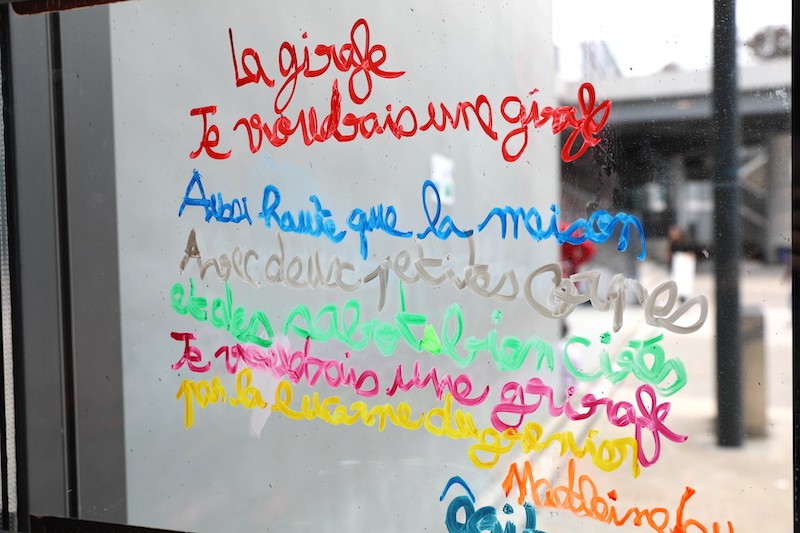 La girafe
Je voudrais une girafe
Aussi haute que la maison
Avec deux petites cornes
et des sabots bien cirés
Je voudrais une girafe
par la lucarne du grenier
Madeleine